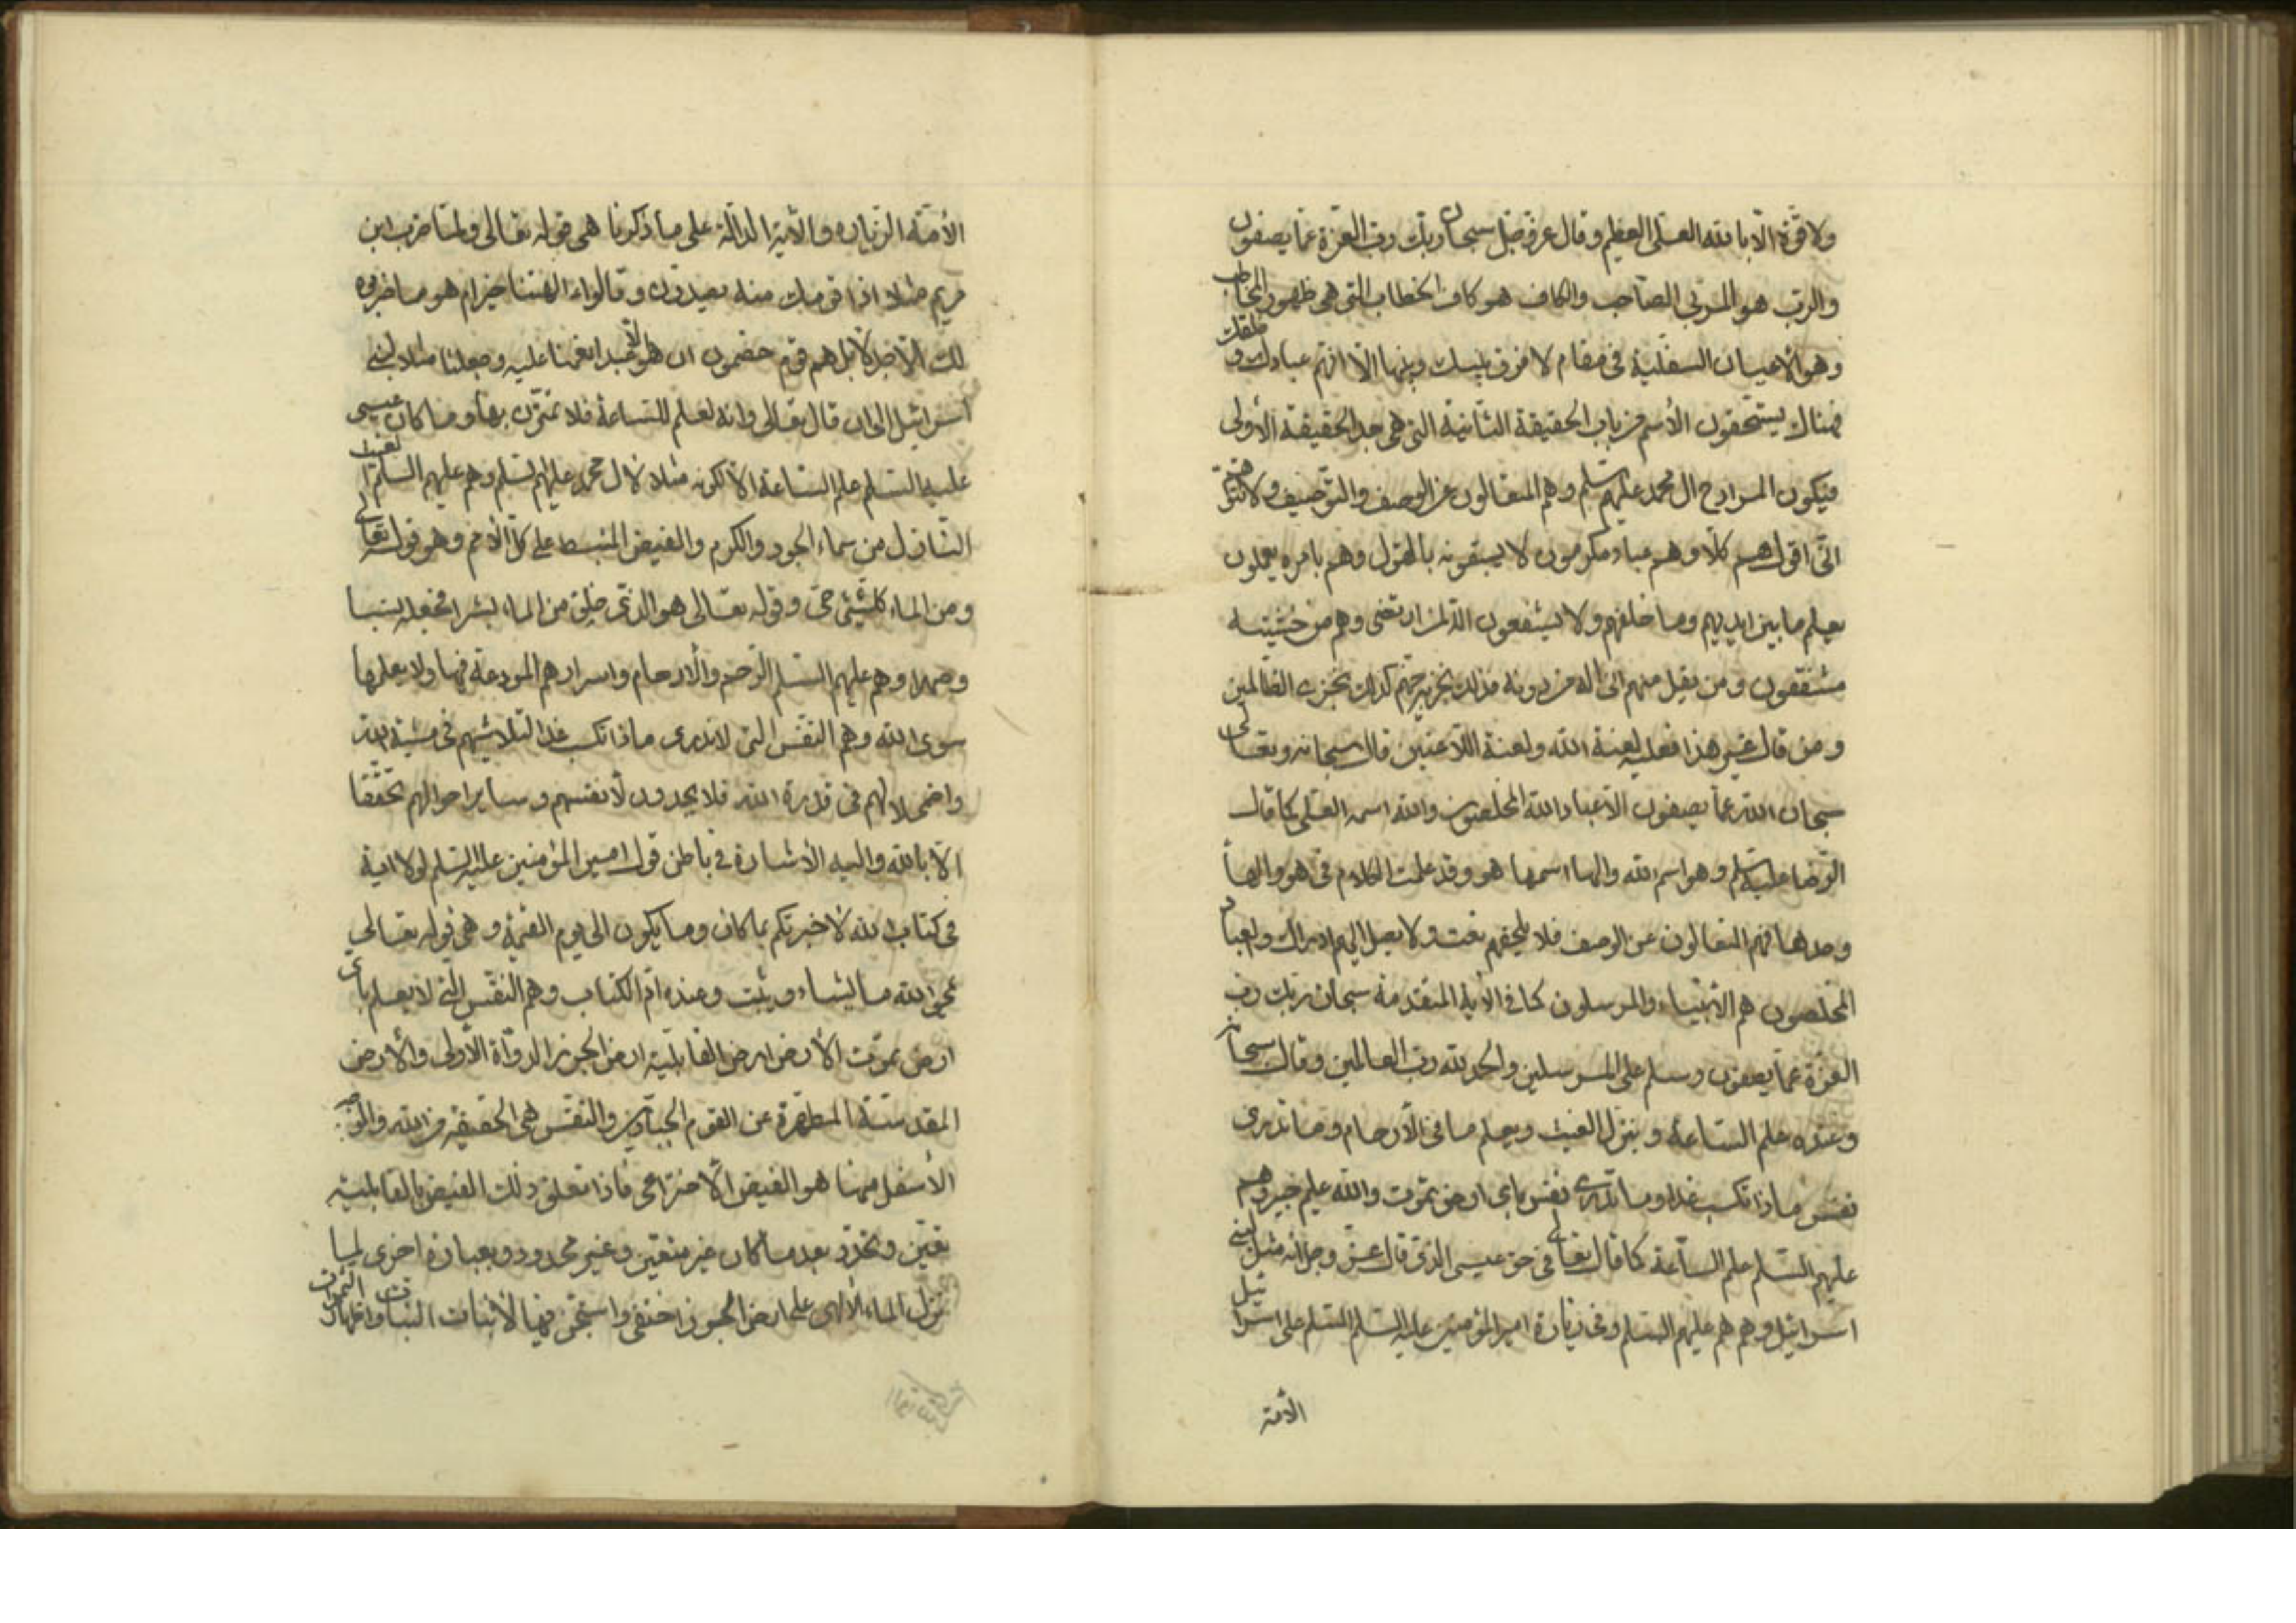 ولا قوة الا بالله العلى العظيم وقال عز وجل سبحان ربك رب العزة عما يصفون
والرب هو المربى الصاحب والكاف هو كاف الخطاب التى هى ظهور المخاطب
وهو الاعيان السفلية فى مقام لا فرق بينك وبينها الا انهم عبادك وخلقك
فهناك يستحقون الأسم من باب الحقيقة الثانية التى هى بعد الحقيقة الأولى
فيكون المراد ح ال محمد عليهم السلم وهم المتعالون عن الوصف والتوصيف ولا تتوهم
انى اقول هم كلا وهم عباد مكرمون لا يسبقونه بالقول وهم بامره يعملون
يعلم ما بين ايديهم وما خلفهم ولا يشفعون الا لمن ارتضى وهم من خشيته
مشفقون ومن يقل منهم انى اله من دونه فذلك نجزيه جهنم كذلك نجزى الظالمين
ومن قال غير هذا فعليه لعنة الله ولعنة اللاعنين قال سبحانه وتعالى
سبحان الله عما يصفون الا عباد الله المخلصون والله اسمه العلى كما قال
الرضا عليه السلم وهو اسم الله والها اسمها هو وقد علمت الكلام فى هو والها
وحدها فهم المتعالون عن الوصف فلا يلحقهم نعت ولا يصل اليهم ادراك والعباد
المخلصون هم الأنبياء والمرسلون كما فى الأية المتقدمة سبحان ربك رب
العزة عما يصفون وسلم على المرسلين والحمد لله رب العالمين وقال سبحانه
وعنده علم الساعة وينزل الغيث ويعلم ما فى الأرحام وما تدرى
نفس ماذا تكسب غدا وما تدرى نفس باى ارض تموت والله عليم خبير وهم
عليهم السلم علم الساعة كما قال تعالى فى حق عيسى الذى قال عز وجل انه مثل لبنى
اسرائيل وهم هم عليهم السلم وفى زيارة امير المؤمنين عليه السلم السلم على اسرائيل
الأمة
الأمة الزيارة والأية الدالة على ما ذكرنا هى قوله تعالى ولما ضرب ابن
مريم مثلا اذا قومك منه يصدون وقالواء الهتنا خير ام هو ما ضربوه
لك الا جدلا بل هم قوم خصمون ان هو الا عبد انعمنا عليه وجعلناه مثلا لبنى
اسرائيل الى ان قال تعالى وانه لعلم للساعة فلا تمترن بها وما كان عيسى
عليه السلم علم الساعة الا لكونه مثلا لأل محمد عليهم السلم وهم عليهم السلم الغيث
النازل من سماء الجود والكرم والفيض المنبسط على كل الأمم وهو قوله تعالى
ومن الماء كلشئ حى وقوله تعالى هو الذى خلق من الماء بشرا فجعله نسبا
وصهرا وهم عليهم السلم الرحم والأرحام واسرارهم المودعة فيها ولا يعلمها
سوى الله وهم النفس التى لا تدرى ماذا تكسب غدا لتلاشيهم فى مشية الله
واضمحلالهم فى قدرة الله فلا يجدون لأنفسهم وساير احوالهم تحققا
الا بالله واليه الأشارة فى باطن قول امير المؤمنين عليه السلم لولا اية
فى كتاب الله لأخبرتكم بما كان وما يكون الى يوم القيمة وهى قوله تعالى
يمحو الله ما يشاء ويثبت وعنده ام الكتاب وهم النفس التى لا تعلم باى
ارض تموت الأرض ارض القابلية ارض الجرز الدواة الأولى والأرض
المقدسة المطهرة عن القوم الجبارين والنفس هى الحقيقة من الله والوجه
الأسفل منها هو الفيض الأختراعى فاذا تعلق ذلك الفيض بالقابلية
تعين وتحدد بعد ما كان غير متعين وغير محدود وبعبارة اخرى لما
نزل الماء الألهى على ارض الجرز اختفى واستجن فيها لأنبات النباتات واظهار الثمرات